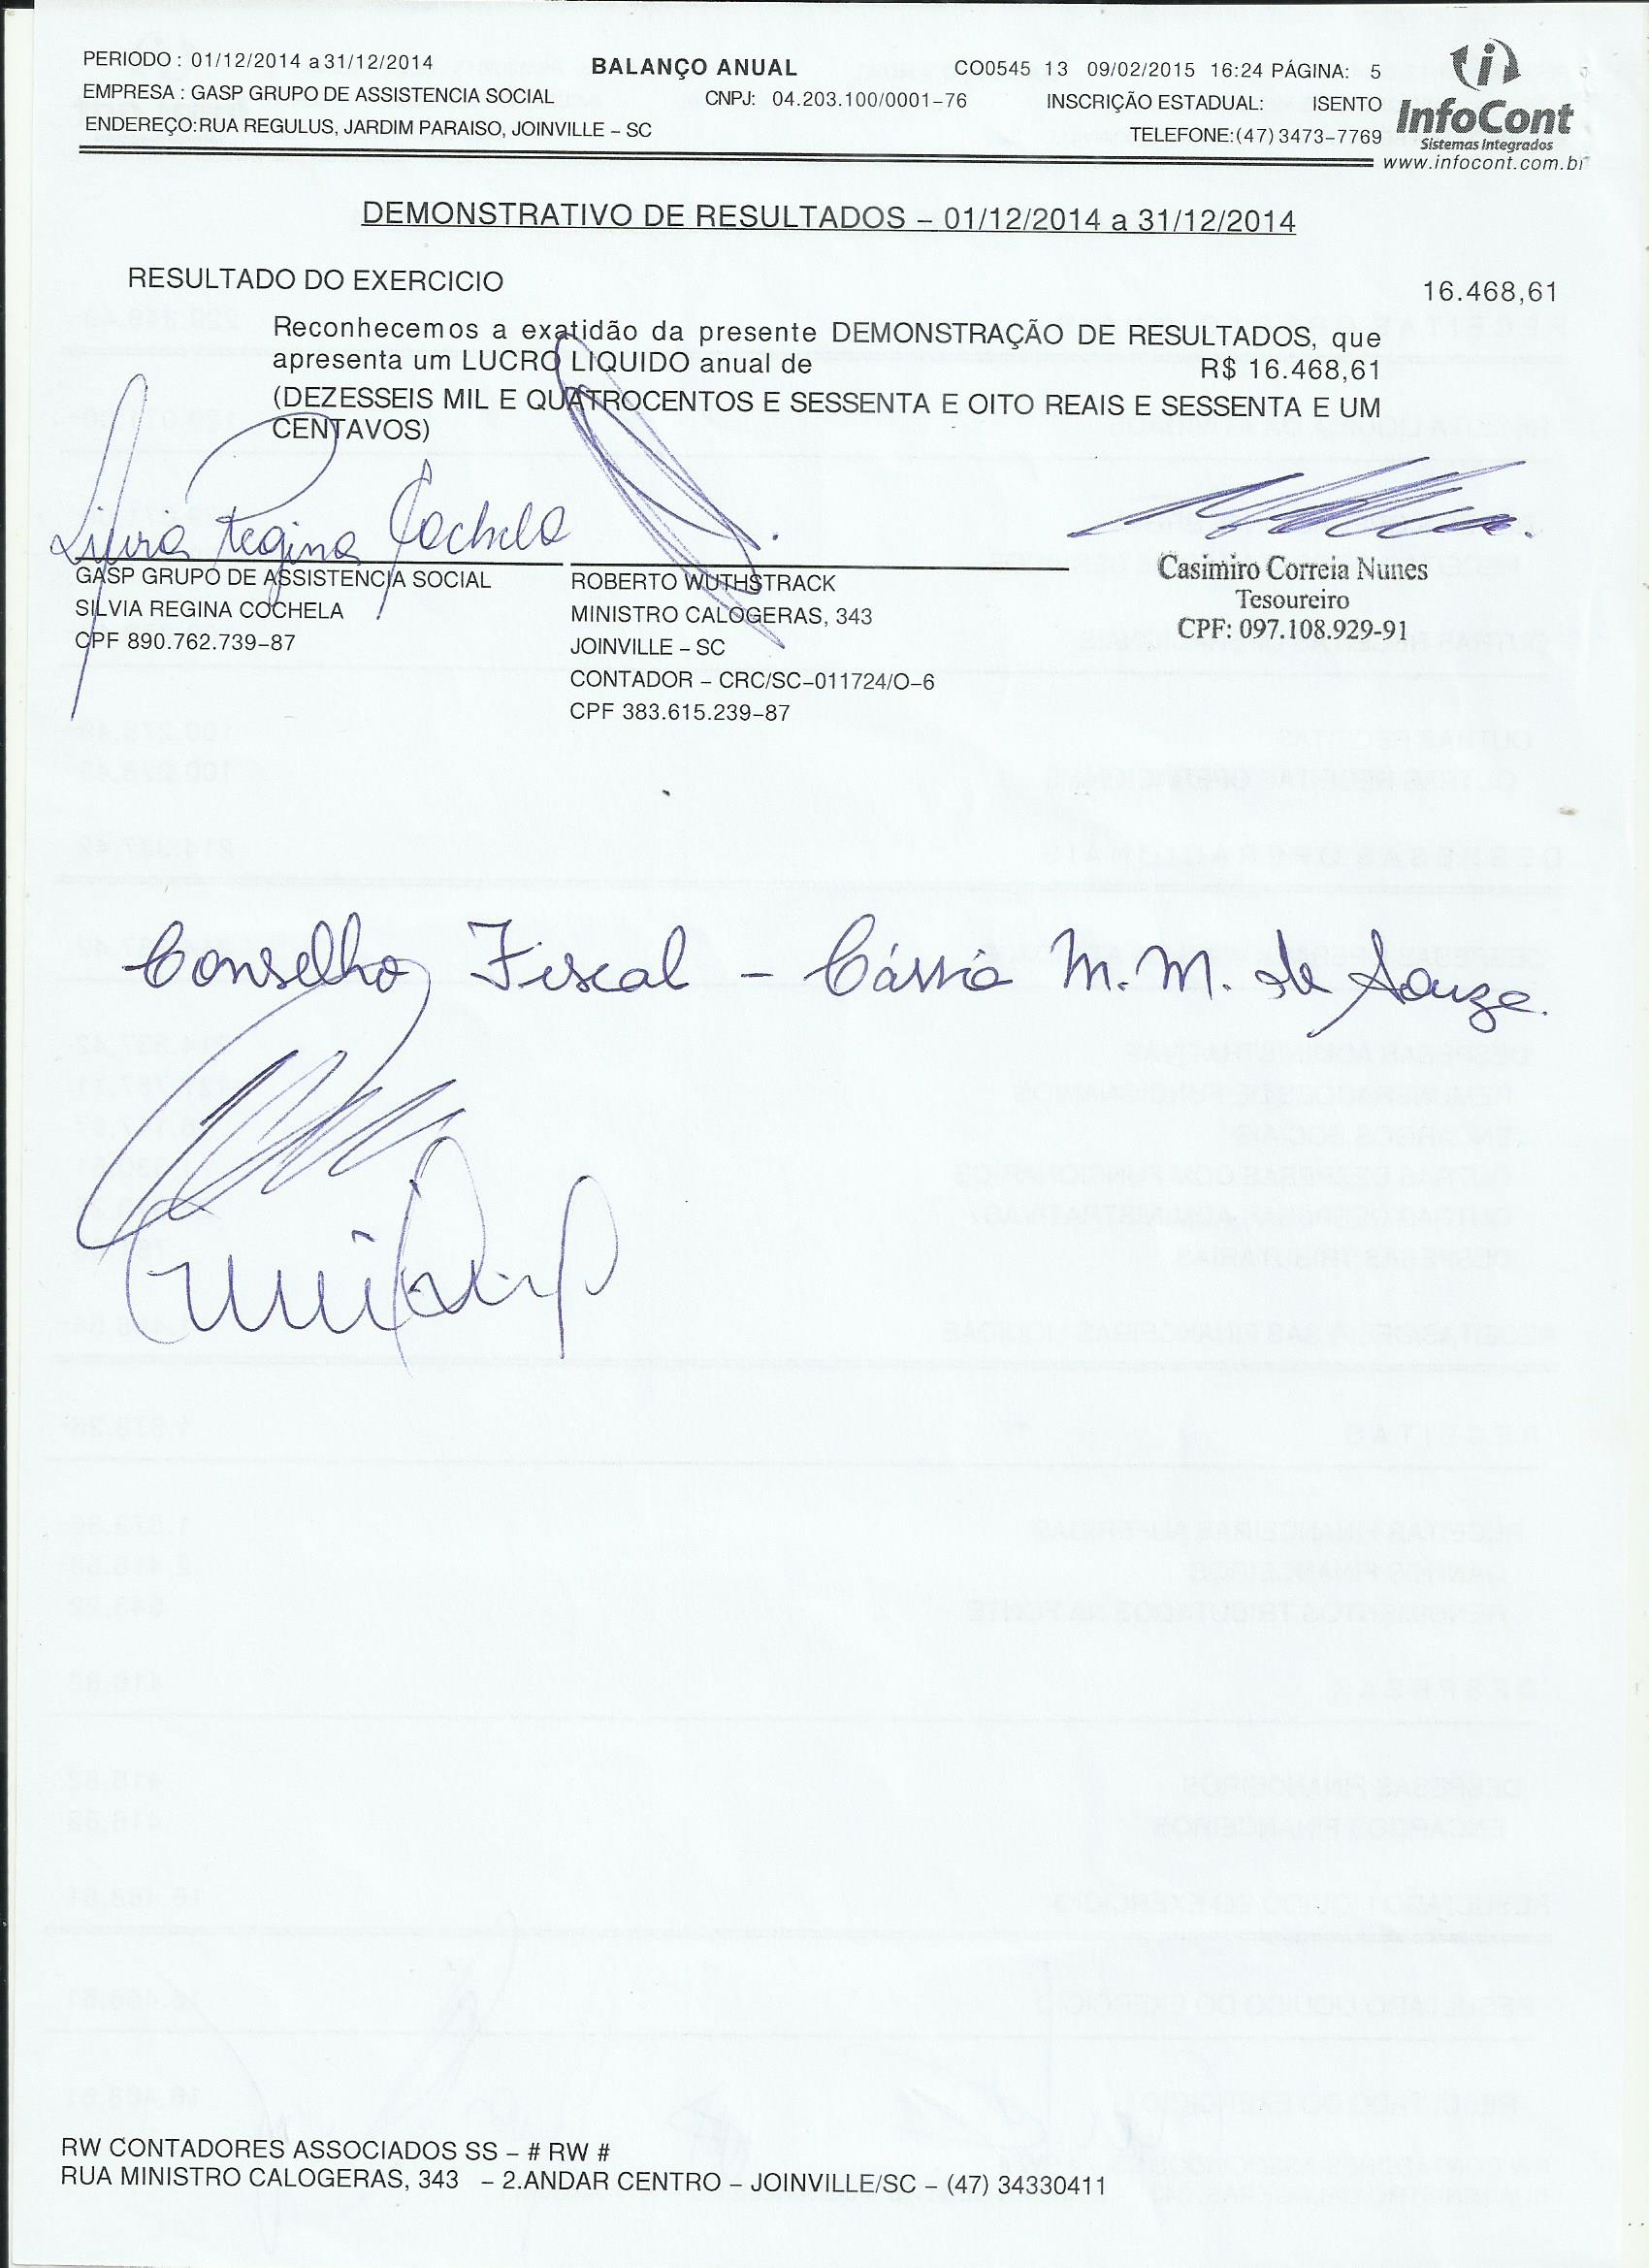 PERIODO : 01/12/2014 a 31/12/2014 BALANÇO ANUAL CO0545 13 09/02/2015 16:24 PÁGINA: 5
EMPRESA : GASP GRUPO DE ASSISTENCIA SOCIAL CNPJ: 04.203.100/0001-76 INSCRIÇÃO ESTADUAL: ISENTO
ENDEREÇO:RUA REGULUS, JARDIM PARAISO, JOINVILLE - SC TELEFONE:(47) 3473-7769
InfoCont
Sistemas Integrados
www.infocont.com.br
DEMONSTRATIVO DE RESULTADOS - 01/12/2014 a 31/12/2014
RESULTADO DO EXERCICIO 16.468,61
Reconhecemos a exatidão da presente DEMONSTRAÇÃO DE RESULTADOS, que
apresenta um LUCRO LIQUIDO anual de R$ 16.468,61
(DEZESSEIS MIL E QUATROCENTOS E SESSENTA E OITO REAIS E SESSENTA E UM
CENTAVOS)
Silvia Regina Cochela
GASP GRUPO DE ASSISTENCIA SOCIAL
SILVIA REGINA COCHELA
CPF 890.762.739-87
ROBERTO WUTHSTRACK
MINISTRO CALOGERAS, 343
JOINVILLE - SC
CONTADOR - CRC/SC-011724/O-6
CPF 383.615.239-87
Casimiro Correia Nunes
Tesoureiro
CPF: 097.108.929-91
Conselho Fiscal - Cássia M. M. de Souza.
RW CONTADORES ASSOCIADOS SS - # RW #
RUA MINISTRO CALOGERAS, 343 - 2.ANDAR CENTRO - JOINVILLE/SC - (47) 34330411